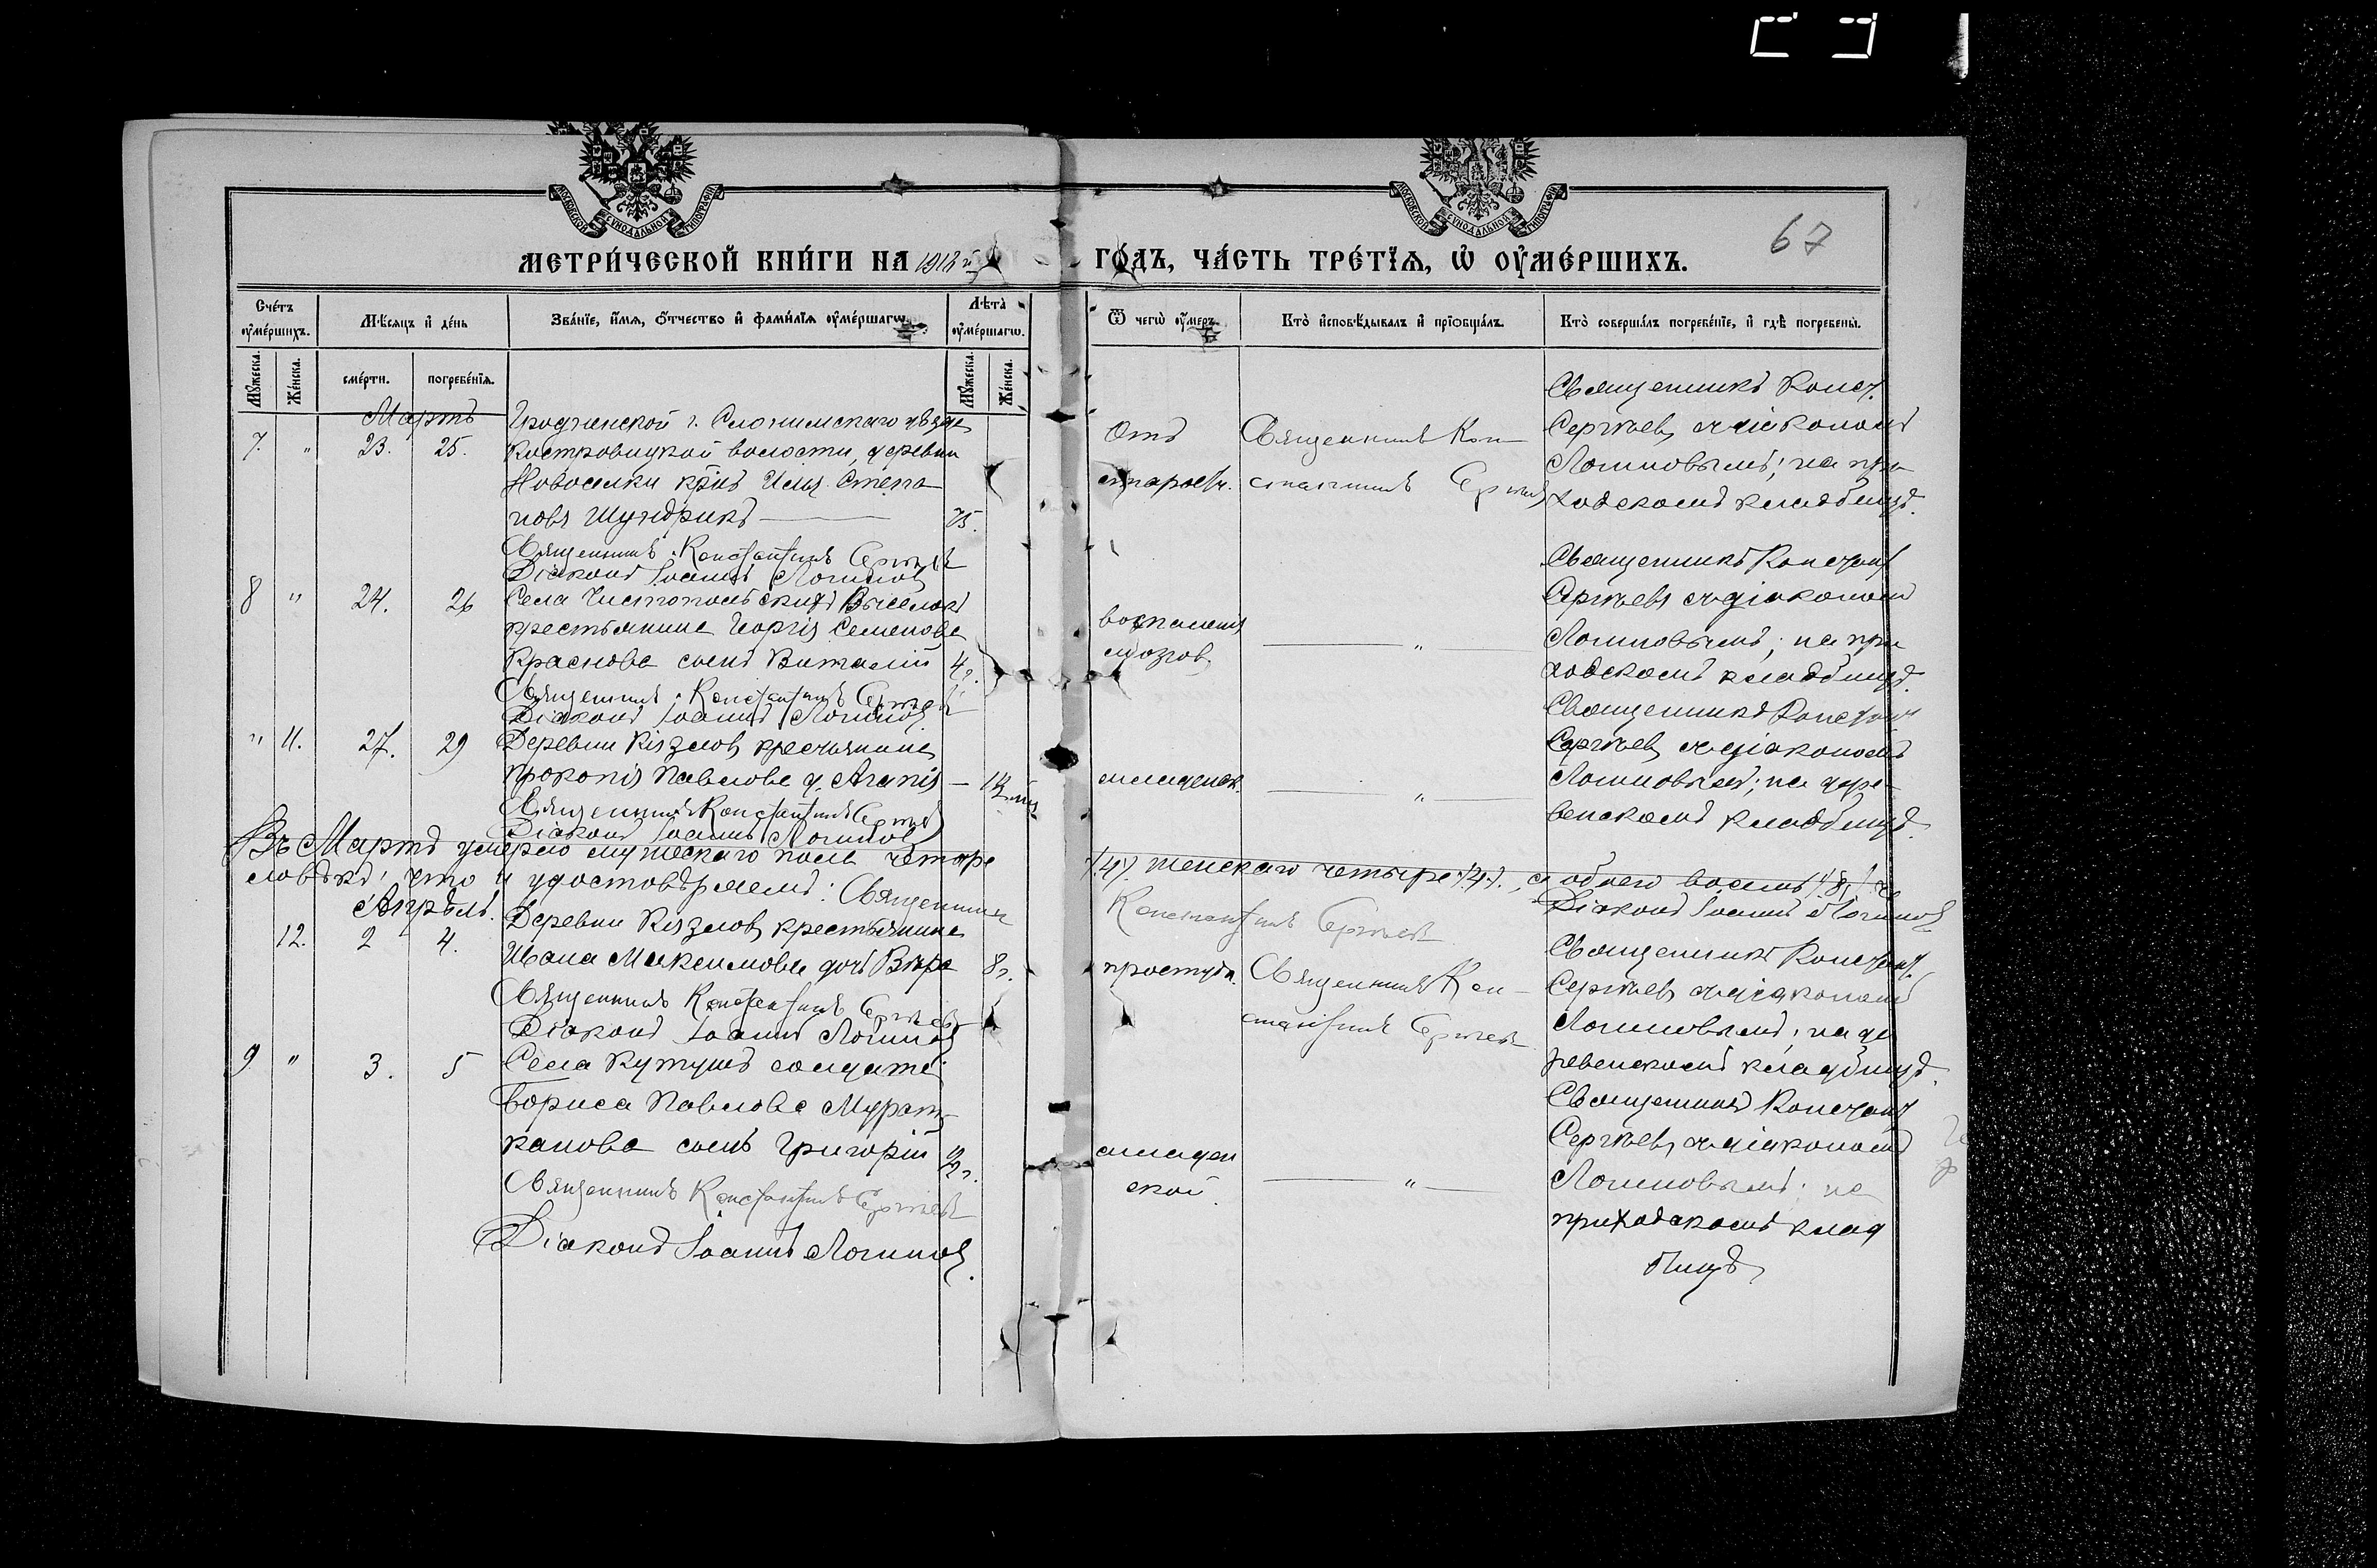 МОСКОВСКОЙ СУНОДАЛЬНОЙ ТИПОГРАФІИ
МОСКОВСКОЙ СУНОДАЛЬНОЙ ТИПОГРАФІИ
67
МЕТРИ́ЧЕСКОЙ КНИ́ГИ НА 1918й
ГО́ДЪ, ЧА́СТЬ ТРЕ́ТІЯ, Ѡ ОУМЕ́РШИХЪ.
Сче́тъ оуме́ршихъ.
Мѣсяцъ и де́нь
Зва́нїе, и́мя, о́тчество и фами́лїя оуме́ршагѡ.
Лѣта̀ оуме́ршагѡ.
Ѿ чегѡ̀ оу́меръ.
Кто̀ исповѣ́дывалъ и прїобща́лъ.
Кто̀ соверша́лъ погребе́нїе, и гдѣ̀ погребены̀.
Мꙋжеска.
Же́нска.
сме́рти.
погребе́нїя.
Мꙋжеска.
Же́нска.
Мартъ
7. " 23. 25.
Гродненской г. Слонимскаго уѣзда
Костровицкой волости, деревни
Новоселки кр̃нъ Илья Степа-
новъ Шундрикъ — 75.
Священникъ Константинъ Сергѣевъ
Діаконъ Іоаннъ Логиновъ
Отъ
старости.
Священникъ Кон-
стантинъ Сергѣевъ
Священникъ Конст.
Сергѣевъ съ діакономъ
Логиновымъ; на при-
ходскомъ кладбищѣ.
8 " 24. 26
Села Чистопольскихъ Выселокъ
крестьянина Георгія Семенова
Краснова сынъ Виталій 4г.
Священникъ Константинъ Сергѣевъ
Діаконъ Іоаннъ Логиновъ
воспаленія
мозгов.
— " —
Священникъ Констант
Сергѣевъ съ діакономъ
Логиновымъ; на при
ходскомъ кладбищѣ.
" 11. 27. 29
Деревни Кіязловъ крестьянина
Прокопія Павлова д. Агапія —
Священникъ Константинъ Сергѣевъ
Діаконъ Іоаннъ Логиновъ
младенч.
— " —
Священникъ Констант
Сергѣевъ съ діакономъ
Логиновымъ; на дере-
венскомъ кладбищѣ.
Въ Мартѣ умерло мужескаго пола четыре /4/. женскаго четыре /4/., а обоего восемь /8/ че
ловѣкъ, что и удостовѣряемъ: Священникъ
Константинъ Сергѣевъ
Діаконъ Іоаннъ Логиновъ
Апрѣль.
12. 2 4.
Деревни Кіязловъ крестьянина
Ивана Максимова дочь Вѣра 8г.
Священникъ Константинъ Сергѣевъ
Діаконъ Іоаннъ Логиновъ
простуды.
Священникъ Кон-
стантинъ Сергѣевъ
Священникъ Констант.
Сергѣевъ съ діакономъ
Логиновымъ; на де
ревенскомъ кладбищѣ.
9 " 3. 5
Села Кутушъ солдата
Бориса Павлова Мурат-
канова сынъ Григорій 2г.
Священникъ Константинъ Сергѣевъ
Діаконъ Іоаннъ Логиновъ.
младен
ской.
— " —
Священникъ Констант
Сергѣевъ съ діакономъ
Логиновымъ; на
приходскомъ клад
бищѣ